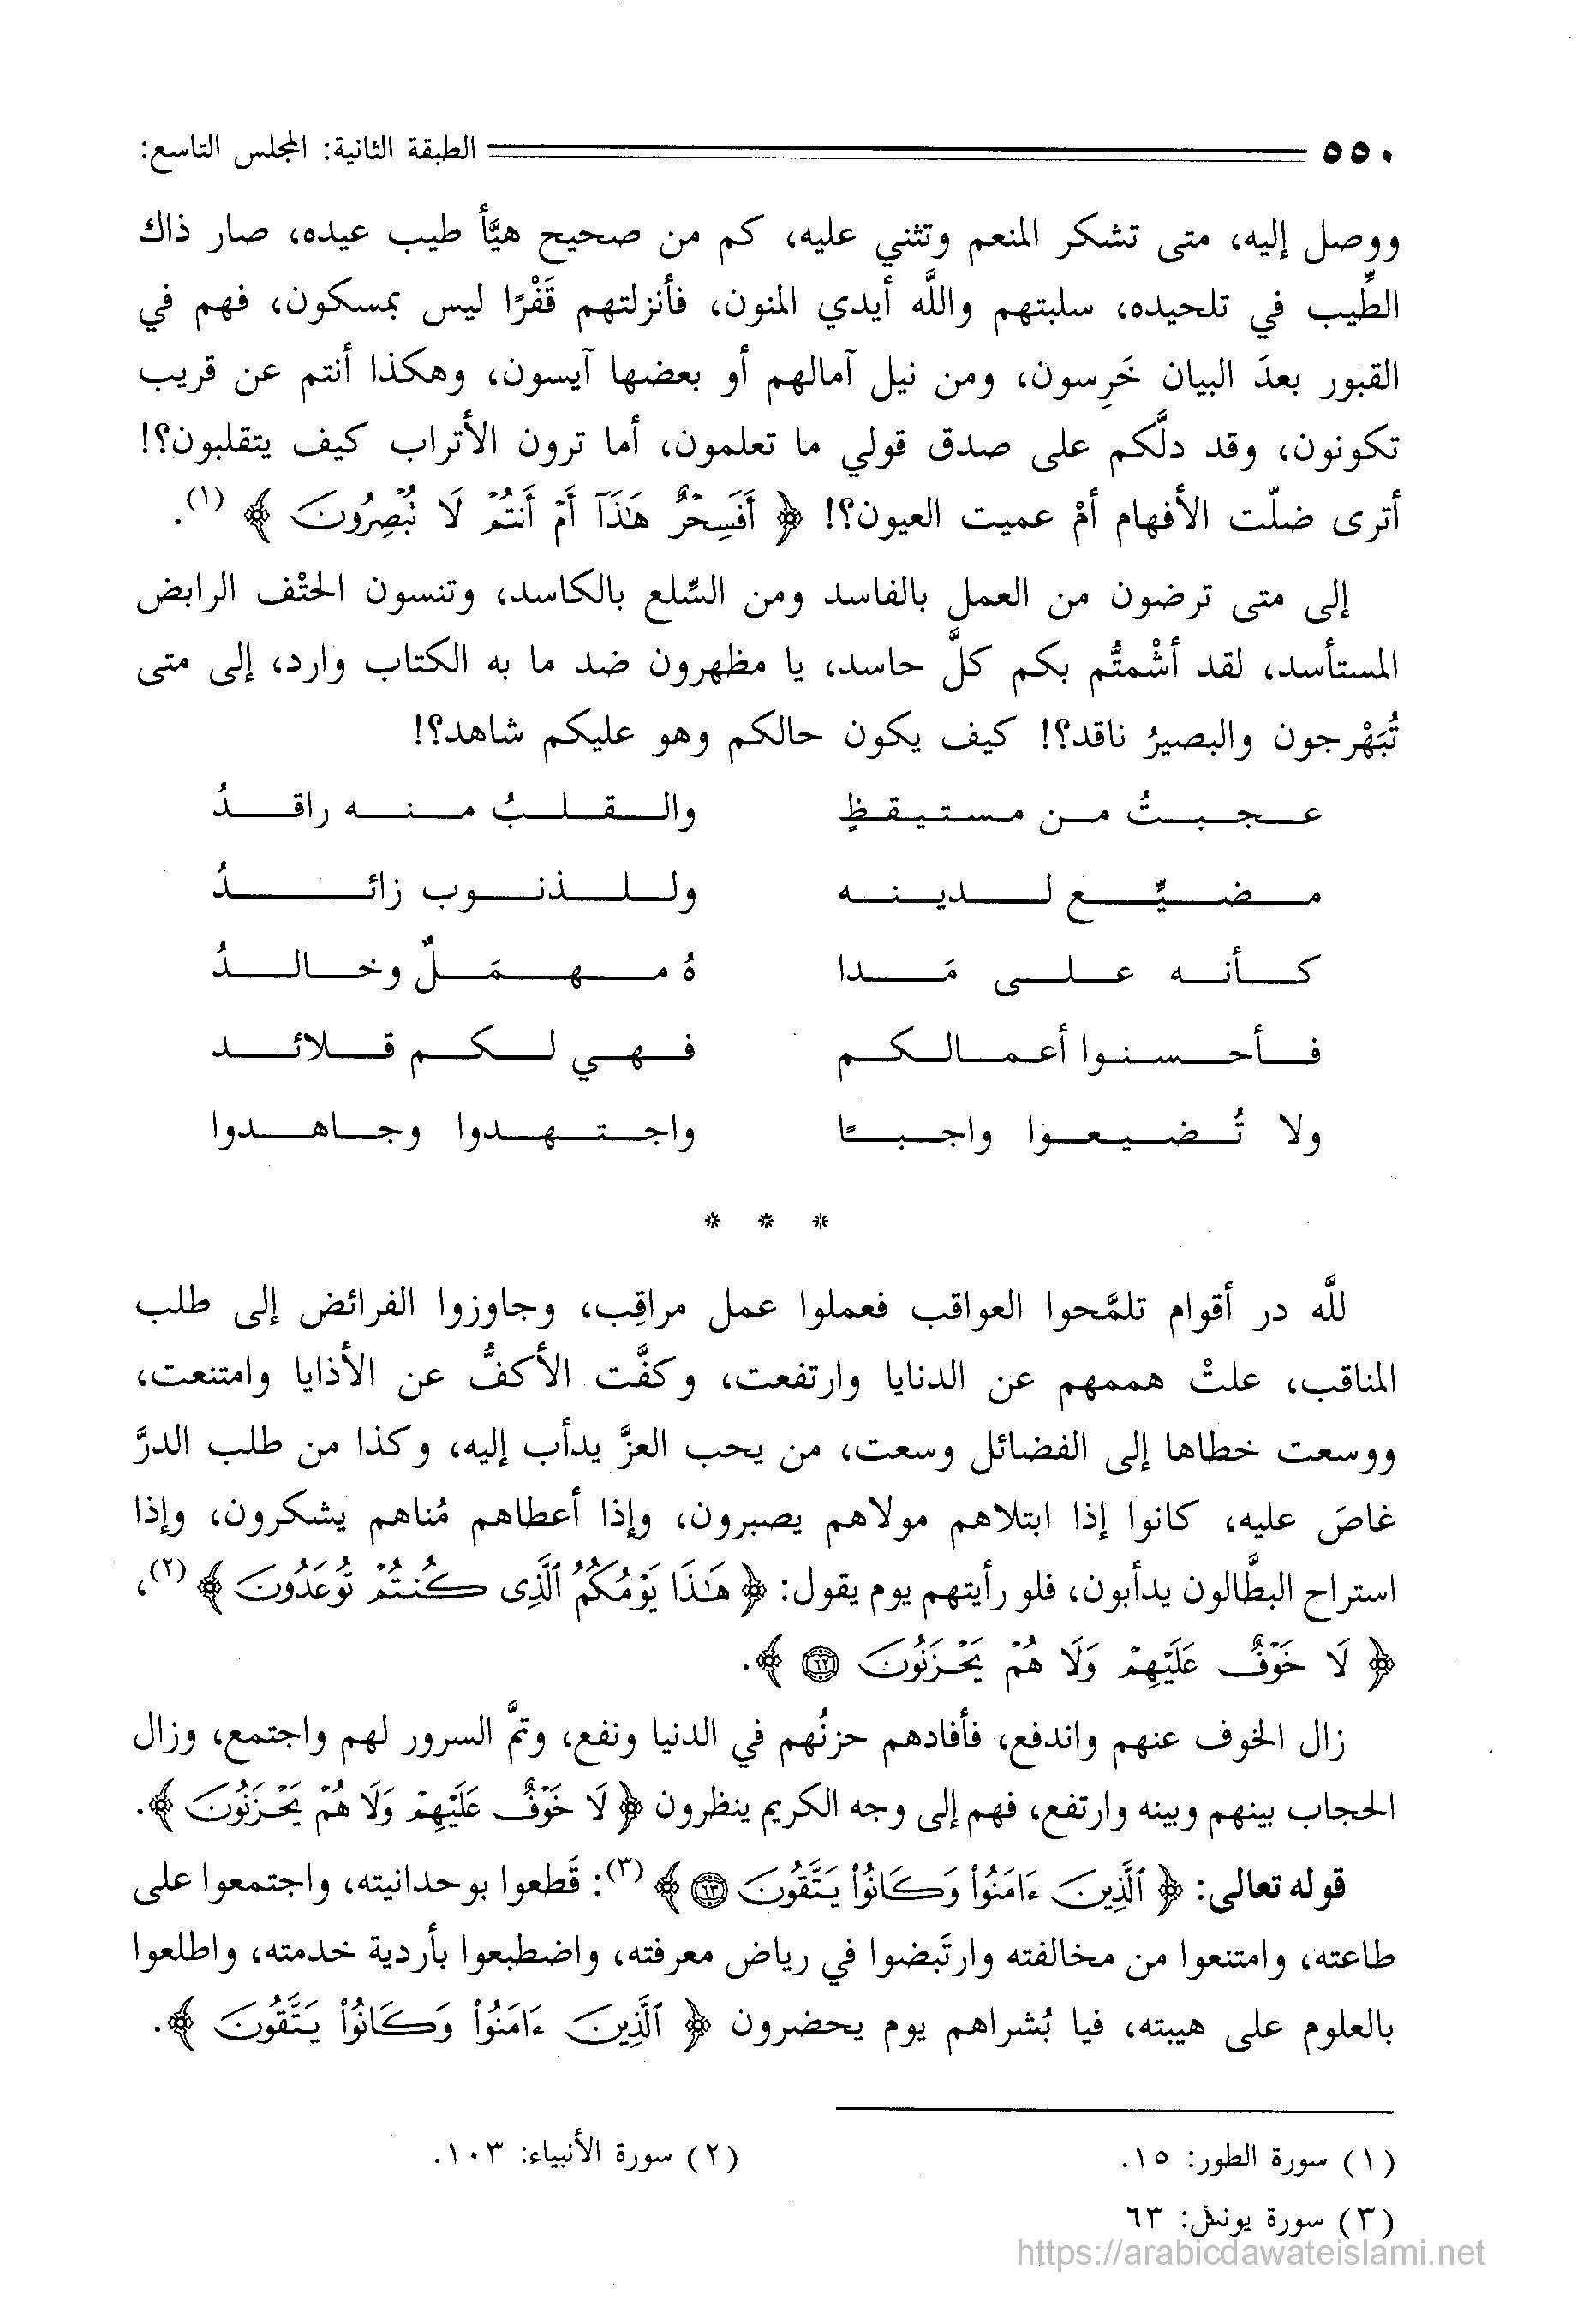 ٥٥٠ الطبقة الثانية: المجلس التاسع:
ووصل إليه، متى تشكر المنعم وتثني عليه، كم من صحيح هيَّأ طيب عيده، صار ذاك
الطِّيب في تلحيده، سلبتهم واللَّه أيدي المنون، فأنزلتهم قَفْرًا ليس بمسكون، فهم في
القبور بعدَ البيان خَرِسون، ومن نيل آمالهم أو بعضها آيسون، وهكذا أنتم عن قريب
تكونون، وقد دلَّكم على صدق قولي ما تعلمون، أما ترون الأتراب كيف يتقلبون؟!
أترى ضلّت الأفهام أمْ عميت العيون؟! ﴿ أَفَسِحْرٌ هَٰذَآ أَمْ أَنتُمْ لَا تُبْصِرُونَ ﴾ (١).
إلى متى ترضون من العمل بالفاسد ومن السِّلع بالكاسد، وتنسون الحتْف الرابض
المستأسد، لقد أشْمتُّم بكم كلَّ حاسد، يا مظهرون ضد ما به الكتاب وارد، إلى متى
تُبَهْرجون والبصيرُ ناقد؟! كيف يكون حالكم وهو عليكم شاهد؟!
عجبتُ من مستيقظٍ والقلبُ منه راقدُ
مضيِّع لدينه وللذنوب زائدُ
كأنه على مَدا هُ مهمَلٌ وخالدُ
فأحسنوا أعمالكم فهي لكم قلائد
ولا تُضيعوا واجبًا واجتهدوا وجاهدوا
* * *
للَّه در أقوام تلمَّحوا العواقب فعملوا عمل مراقِب، وجاوزوا الفرائض إلى طلب
المناقب، علتْ هممهم عن الدنايا وارتفعت، وكفَّت الأكفُّ عن الأذايا وامتنعت،
ووسعت خطاها إلى الفضائل وسعت، من يحب العزَّ يدأب إليه، وكذا من طلب الدرَّ
غاصَ عليه، كانوا إذا ابتلاهم مولاهم يصبرون، وإذا أعطاهم مُناهم يشكرون، وإذا
استراح البطَّالون يدأبون، فلو رأيتهم يوم يقول: ﴿ هَٰذَا يَوْمُكُمُ ٱلَّذِى كُنتُمْ تُوعَدُونَ ﴾ (٢)،
﴿ لَا خَوْفٌ عَلَيْهِمْ وَلَا هُمْ يَحْزَنُونَ ٦٢ ﴾.
زال الخوف عنهم واندفع، فأفادهم حزنُهم في الدنيا ونفع، وتمَّ السرور لهم واجتمع، وزال
الحجاب بينهم وبينه وارتفع، فهم إلى وجه الكريم ينظرون ﴿ لَا خَوْفٌ عَلَيْهِمْ وَلَا هُمْ يَحْزَنُونَ ﴾.
قوله تعالى: ﴿ ٱلَّذِينَ ءَامَنُوا۟ وَكَانُوا۟ يَتَّقُونَ ٦٣ ﴾ (٣): قَطعوا بوحدانيته، واجتمعوا على
طاعته، وامتنعوا من مخالفته وارتَبضوا في رياض معرفته، واضطبعوا بأردية خدمته، واطلعوا
بالعلوم على هيبته، فيا بُشراهم يوم يحضرون ﴿ ٱلَّذِينَ ءَامَنُوا۟ وَكَانُوا۟ يَتَّقُونَ ﴾.
(١) سورة الطور: ١٥. (٢) سورة الأنبياء: ١٠٣.
(٣) سورة يونس: ٦٣
https://arabicdawateislami.net